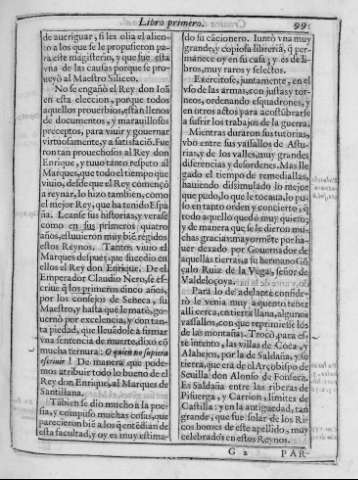 Libro primero. 99
de aueriguar, si les olia el alien-
to a los que se le propusieron pa-
ra este magisterio, y que fue esta
vna de las causas porque se pro-
ueyò al Maestro Siliceo.
No se engañò el Rey don Ioã
en esta eleccion, porque todos
aquellos prouerbios, estàn llenos
de documentos, y marauillosos
preceptos, para viuir y gouernar
virtuosamente, y a satisfaciõ. Fue
ron tan prouechosos al Rey don
Enrique, y tuuo tanto respeto al
Marques, que todo el tiempo que
viuio, desde que el Rey començò
a reynar, lo hizo tambien, como
el mejor Rey, que ha tenido Espa
ña. Leanse sus historias, y verase
como en sus primeros quatro
años, estuuieron muy biẽ regidos
estos Reynos. Tanto viuio el
Marques despues, que sucedio en
ellos el Rey don Enrique. De el
Emperador Claudio Nero, se es-
criue q̃ los primeros cinco años,
por los consejos de Seneca, su
Maestro, y hasta que le matò, go-
uernò por excelencia, y con tan-
ta piedad, que lleuãdole à firmar
vna sentencia de muerte, dixo cõ
mucha ternura: O quien no supiera
escriuir! De manera que pode-
mos atribuir todo lo bueno de el
Rey don Enrique, al Marques de
Santillana.
Tãbien se dio mucho a la poe-
sia, y compuso muchas cosas, que
parecieron biẽ a los q̃ entẽdian de
esta facultad, y oy es muy estima-
do su cãcionero. Iuntò vna muy
grande, y copiosa libreria, q̃ per-
manece oy en su casa; y es de li-
bros, muy raros y selectos.
Exercitose, juntamente, en el
vso de las armas, con justas y tor-
neos, ordenando esquadrones, y
en otros actos para acostũbrarse
a sufrir los trabajos de la guerra.
Mientras duraron sus tutorias,
vbo entre sus vassallos de Astu-
rias, y de los valles, muy grandes
diferencias y desordenes. Mas lle
gado el tiempo de remediallas,
hauiendo dissimulado lo mejor
que pudo, lo que le tocaua, lo pu-
so en tanto orden y concierto, q̃
todo aquello quedò muy quieto;
y de manera que se le dieron mu-
chas gracias: mayormẽte por ha-
uer dexado por Gouernador de
aquellas tierras, a su hermano Gõ
çalo Ruiz de la Vega, señor de
Valdeloçoya.
Para lo de adelante confide-
rò le venia muy a quento tener
alli cerca, en tierra llana, algunos
vassallos, con que reprimiesse los
de las montañas. Trocò, para es-
te intento, las villas de Coca y
Alahejos, por la de Saldaña, y su
tierra, que era de el Arçobispo de
Seuilla don Alonso de Fonseca.
Es Saldaña entre las riberas de
Pisuerga, y Carrion, limites de
Castilla: y en la antiguedad, tan
grande, que fue solar de los Ri-
cos homes de este apellido, muy
celebrados en estos Reynos.
G 2 PAR-